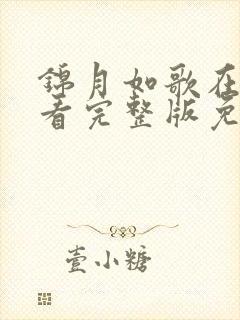 錦月如歌在
看完整版免
壹小糖